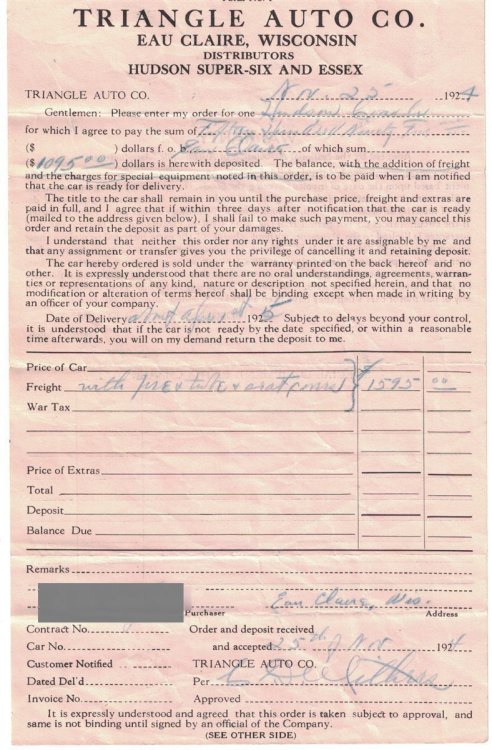 TRIANGLE AUTO CO.
EAU CLAIRE, WISCONSIN
DISTRIBUTORS
HUDSON SUPER-SIX AND ESSEX
TRIANGLE AUTO CO. Nov. 25 1924
Gentlemen: Please enter my order for one Hudson
for which I agree to pay the sum of Fifteen Hundred Ninety Five
($ ) dollars f. o. Eau Claire of which sum
($1095 00) dollars is herewith deposited. The balance, with the addition of freight
and the charges for special equipment noted in this order, is to be paid when I am notified
that the car is ready for delivery.
The title to the car shall remain in you until the purchase price, freight and extras are
paid in full, and I agree that if within three days after notification that the car is ready
(mailed to the address given below), I shall fail to make such payment, you may cancel this
order and retain the deposit as part of your damages.
I understand that neither this order nor any rights under it are assignable by me and
that any assignment or transfer gives you the privilege of cancelling it and retaining deposit.
The car hereby ordered is sold under the warranty printed on the back hereof and no
other. It is expressly understood that there are no oral understandings, agreements, warran-
ties or representations of any kind, nature or description not specified herein, and that no
modification or alteration of terms hereof shall be binding except when made in writing by
an officer of your company.
Date of Delivery about April 1st 1925 Subject to delays beyond your control,
it is understood that if the car is not ready by the date specified, or within a reasonable
time afterwards, you will on my demand return the deposit to me.
Price of Car
Freight with tire & tube & seat covers $1595 00
War Tax
Price of Extras
Total
Deposit
Balance Due
Remarks
Eau Claire, Wis.
Purchaser Address
Contract No. Order and deposit received
Car No. and accepted 25th of Nov 1924
Customer Notified TRIANGLE AUTO CO.
Dated Del'd Per
Invoice No. Approved
It is expressly understood and agreed that this order is taken subject to approval, and
same is not binding until signed by an official of the Company.
(SEE OTHER SIDE)